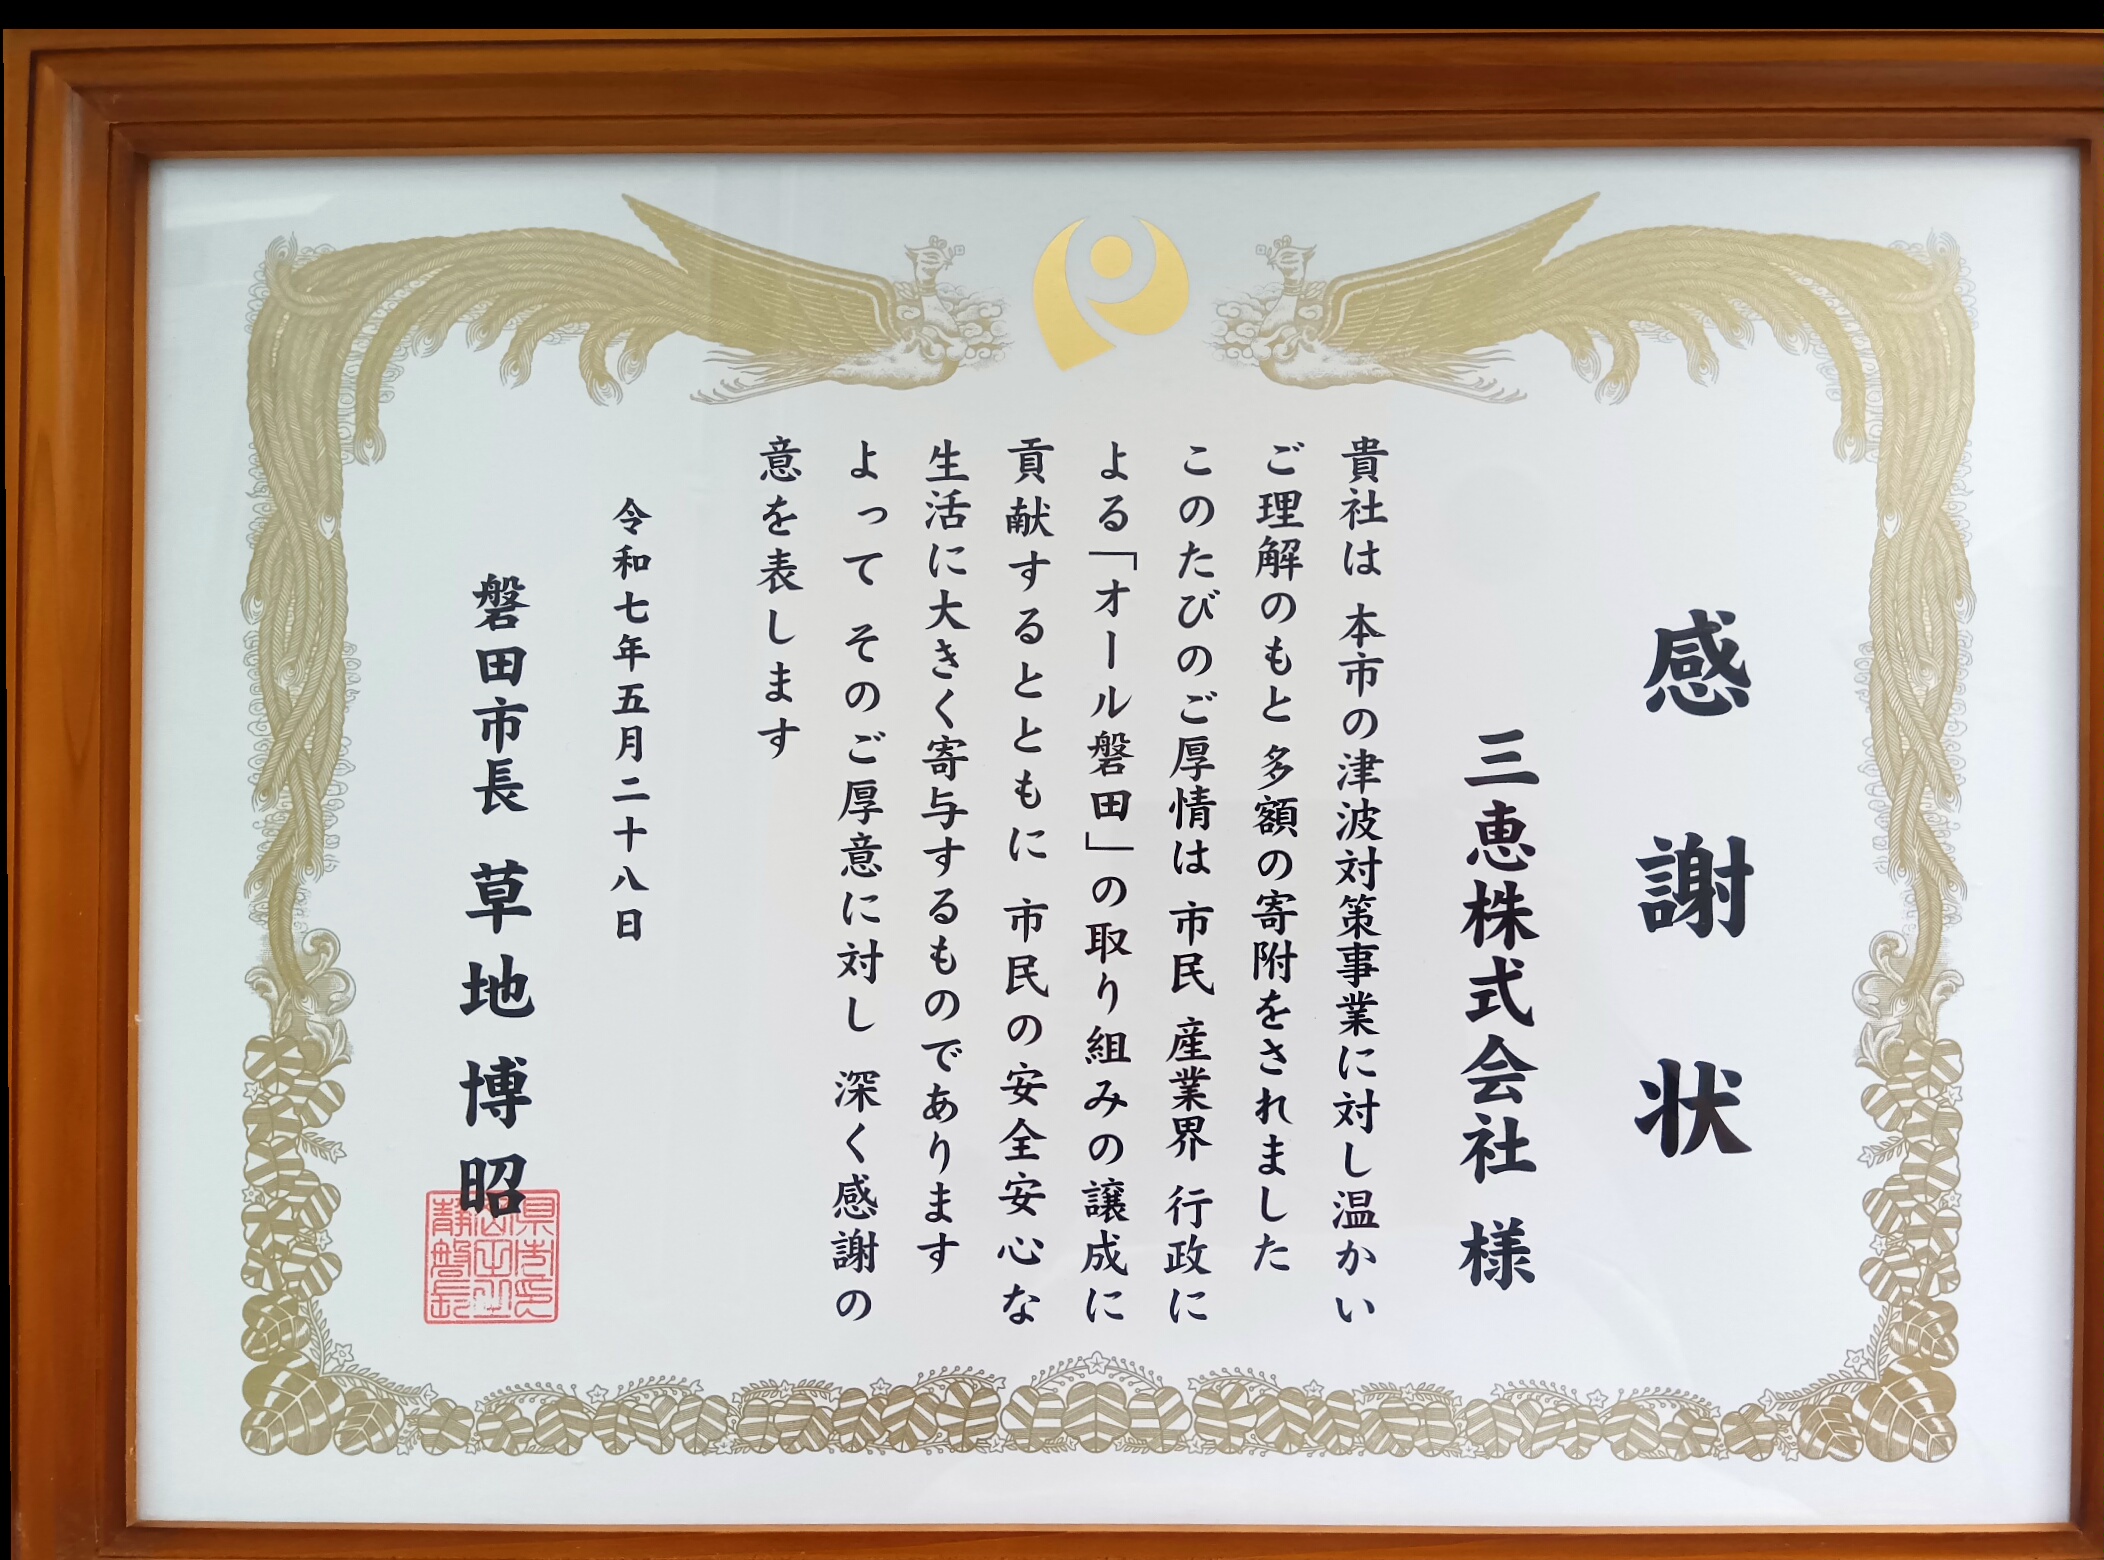 感謝状
三恵株式会社 様
貴社は 本市の津波対策事業に対し温かい
ご理解のもと 多額の寄附をされました
このたびのご厚情は 市民 産業界 行政に
よる「オール磐田」の取り組みの譲成に
貢献するとともに 市民の安全安心な
生活に大きく寄与するものであります
よって そのご厚意に対し 深く感謝の
意を表します
令和七年五月二十八日
磐田市長 草地博昭